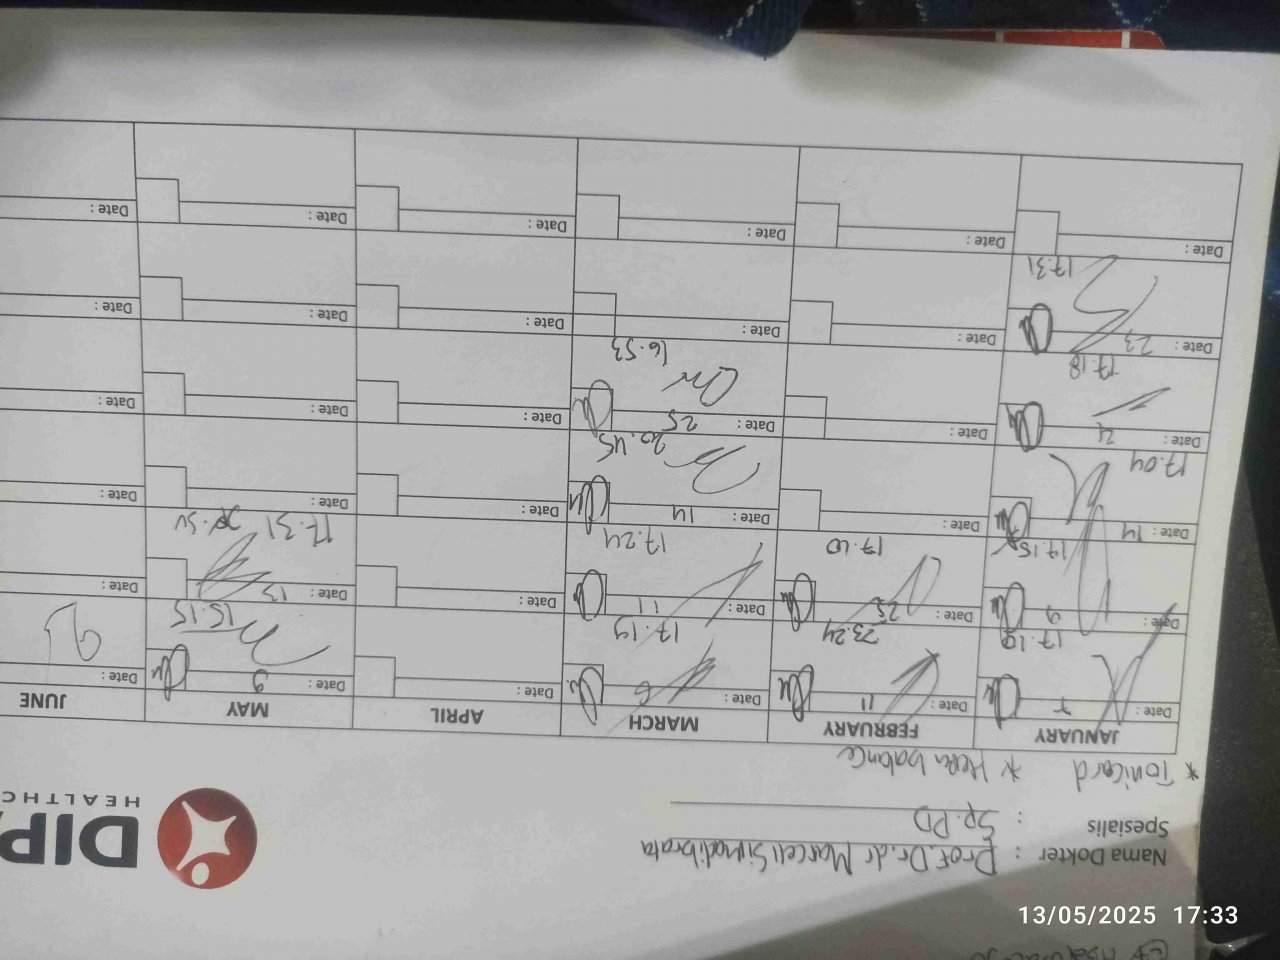 Nama Dokter : Prof. Dr. dr Marcell Simadibrata
Spesialis : Sp. PD
DIP
HEALTHC
* Tonicard * Hepa balance
JANUARY FEBRUARY MARCH APRIL MAY JUNE
Date : 7 Date : 11 Date : 6 Date : Date : 9 Date :
17.19 23.24 17.19 15.15
Date : 9 Date : 25 Date : 11 Date : Date : 13 Date :
17.15 17.10 17.24 17.31
Date : 14 Date : Date : 14 Date : Date : Date :
17.04 20.45
Date : 21 Date : Date : 25 Date : Date : Date :
17.18 16.53
Date : 23 Date : Date : Date : Date : Date :
17.31
Date : Date : Date : Date : Date : Date :
13/05/2025 17:33